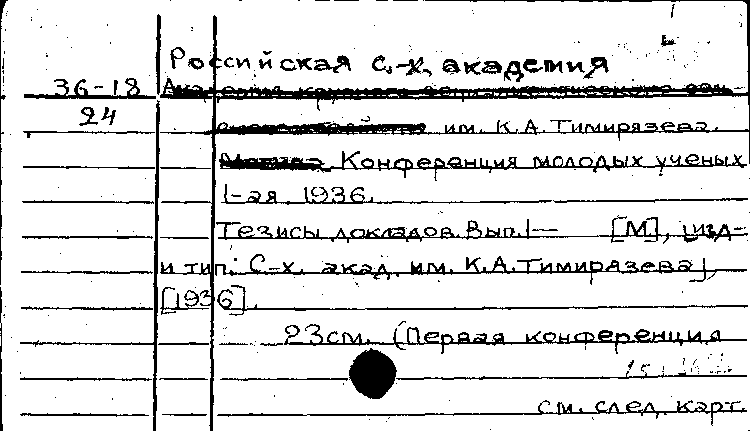 Российская с.-х. академия
36-18
24
им. К.А. Тимирязева.
Конференция молодых ученых
1-ая. 1936.
Тезисы докладов. Вып. 1— [М], изд-
и тип. С-х. акад. им. К.А. Тимирязева],
[1936].
23см. (Первая конференция
см. след. карт.